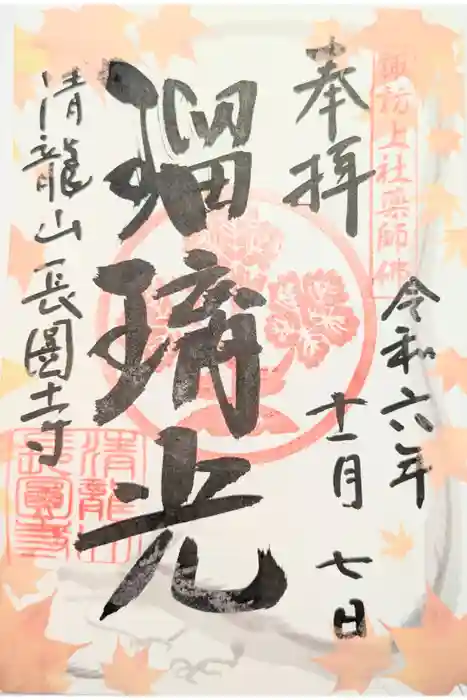 諏訪上社薬師佛
奉拝
令和六年
十一月七日
瑠璃光
清龍山長圓寺
清龍山
長圓寺